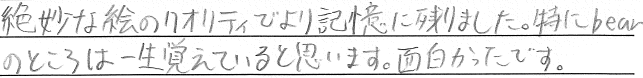 絶妙な絵のクオリティでより記憶に残りました。特にbear
のところは一生覚えていると思います。面白かったです。